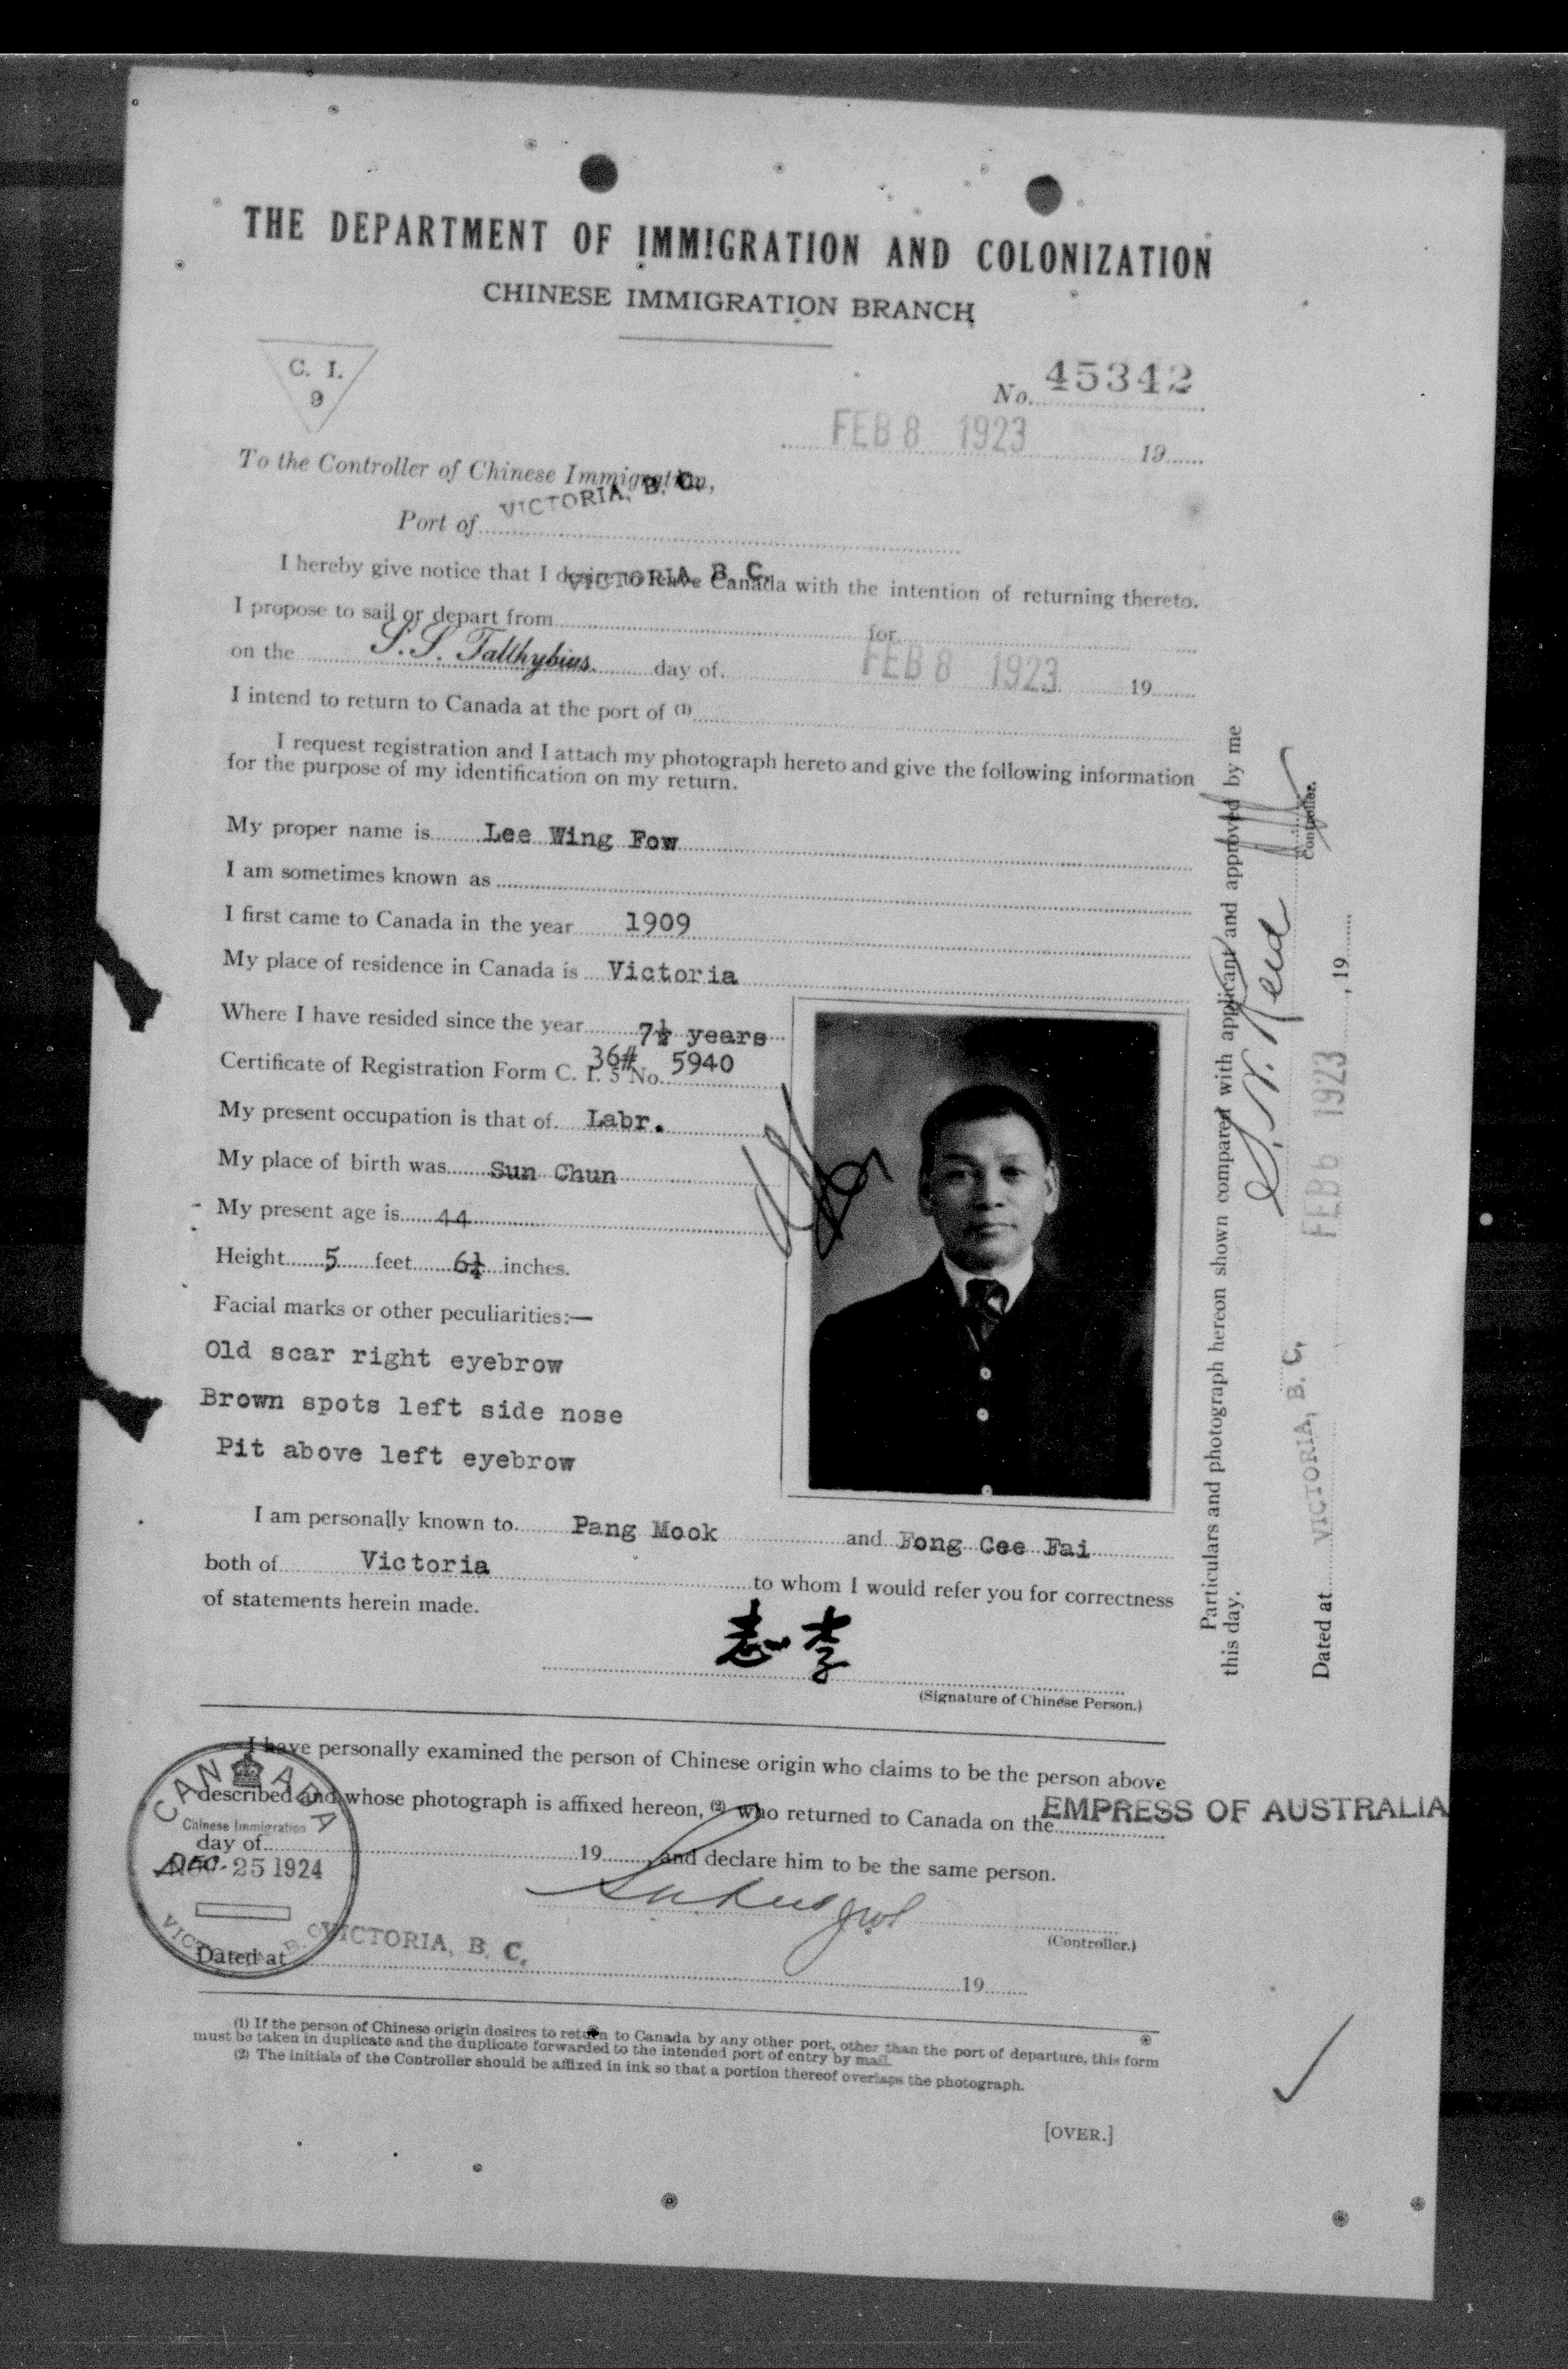 THE DEPARTMENT OF IMMIGRATION AND COLONIZATION
CHINESE IMMIGRATION BRANCH
C. I.
9
No. 45342
FEB 8 1923 19
To the Controller of Chinese Immigration,
VICTORIA, B. C.
Port of
I hereby give notice that I desire to leave Canada with the intention of returning thereto.
VICTORIA, B. C.
I propose to sail or depart from for
on the S.S. Talthybius day of FEB 8 1923 19
I intend to return to Canada at the port of (1)
I request registration and I attach my photograph hereto and give the following information
for the purpose of my identification on my return.
My proper name is Lee Wing Fow
I am sometimes known as
I first came to Canada in the year 1909
My place of residence in Canada is Victoria
Where I have resided since the year 7½ years
Certificate of Registration Form C. I. 5 No. 36# 5940
My present occupation is that of Labr.
My place of birth was Sun Chun
My present age is 44
Height 5 feet 6¼ inches.
Facial marks or other peculiarities:—
Old scar right eyebrow
Brown spots left side nose
Pit above left eyebrow
I am personally known to Pang Mook and Fong Cee Fai
both of Victoria to whom I would refer you for correctness
of statements herein made.
志李
(Signature of Chinese Person.)
Particulars and photograph hereon shown compared with applicant and approved by me
this day.
Controller.
Dated at VICTORIA, B. C. FEB 6 1923, 19
I have personally examined the person of Chinese origin who claims to be the person above
described and whose photograph is affixed hereon, (2) who returned to Canada on the EMPRESS OF AUSTRALIA
day of 19 and declare him to be the same person.
CANADA
Chinese Immigration
DEC. 25 1924
VICTORIA, B. C.
(Controller.)
Dated at VICTORIA, B. C. 19
(1) If the person of Chinese origin desires to return to Canada by any other port, other than the port of departure, this form
must be taken in duplicate and the duplicate forwarded to the intended port of entry by mail.
(2) The initials of the Controller should be affixed in ink so that a portion thereof overlaps the photograph.
[OVER.]